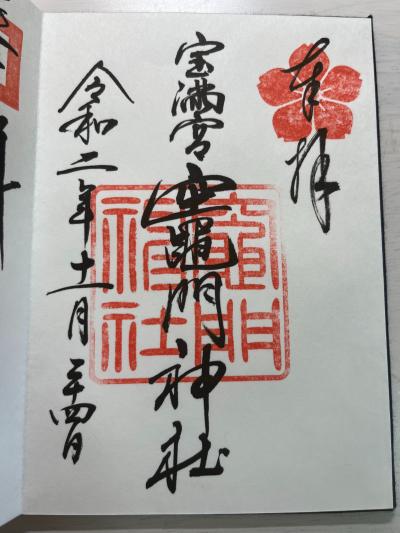 奉拝
宝満宮
竈門神社
竈門
神社
令和二年十一月二十四日